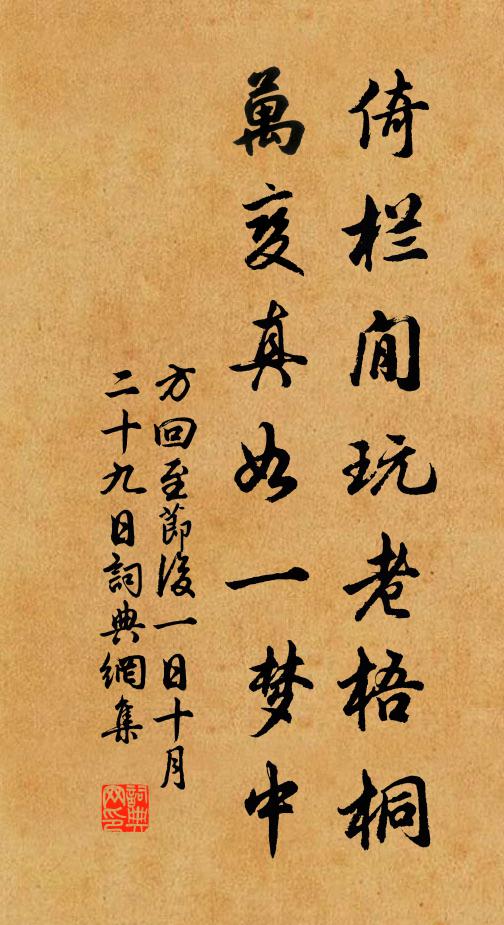 倚栏闲玩老梧桐
萬变真如一梦中
方回至節後一日十月
二十九日詞典網集
詞典網印